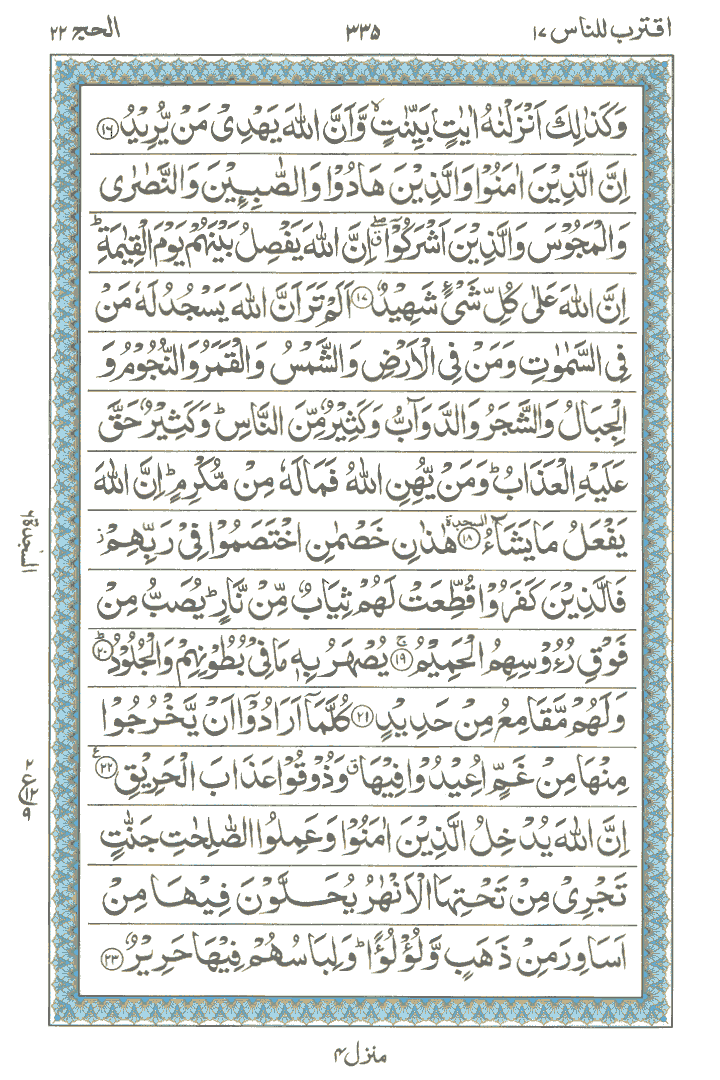 اقترب للناس ١٧
٣٣٥
الحج ٢٢
وَكَذٰلِكَ اَنْزَلْنٰهُ اٰيٰتٍۭ بَيِّنٰتٍ ۙ وَّاَنَّ اللّٰهَ يَهْدِىْ مَنْ يُّرِيْدُ ﴿١٦﴾
اِنَّ الَّذِيْنَ اٰمَنُوْا وَالَّذِيْنَ هَادُوْا وَالصّٰبِـِٕيْنَ وَالنَّصٰرٰى
وَالْمَجُوْسَ وَالَّذِيْنَ اَشْرَكُوْٓا ۖ اِنَّ اللّٰهَ يَفْصِلُ بَيْنَهُمْ يَوْمَ الْقِيٰمَةِ ؕ
اِنَّ اللّٰهَ عَلٰى كُلِّ شَىْءٍ شَهِيْدٌ ﴿١٧﴾ اَلَمْ تَرَ اَنَّ اللّٰهَ يَسْجُدُ لَهٗ مَنْ
فِى السَّمٰوٰتِ وَمَنْ فِى الْاَرْضِ وَالشَّمْسُ وَالْقَمَرُ وَالنُّجُوْمُ وَ
الْجِبَالُ وَالشَّجَرُ وَالدَّوَآبُّ وَكَثِيْرٌ مِّنَ النَّاسِ ؕ وَكَثِيْرٌ حَقَّ
عَلَيْهِ الْعَذَابُ ؕ وَمَنْ يُّهِنِ اللّٰهُ فَمَا لَهٗ مِنْ مُّكْرِمٍ ؕ اِنَّ اللّٰهَ
يَفْعَلُ مَا يَشَآءُ ﴿١٨﴾ السجدة هٰذٰنِ خَصْمٰنِ اخْتَصَمُوْا فِىْ رَبِّهِمْ ز
فَالَّذِيْنَ كَفَرُوْا قُطِّعَتْ لَهُمْ ثِيَابٌ مِّنْ نَّارٍ ؕ يُصَبُّ مِنْ
فَوْقِ رُءُوْسِهِمُ الْحَمِيْمُ ۚ ﴿١٩﴾ يُصْهَرُ بِهٖ مَا فِىْ بُطُوْنِهِمْ وَالْجُلُوْدُ ؕ ﴿٢٠﴾
وَلَهُمْ مَّقَامِعُ مِنْ حَدِيْدٍ ﴿٢١﴾ كُلَّمَآ اَرَادُوْٓا اَنْ يَّخْرُجُوْا
مِنْهَا مِنْ غَمٍّ اُعِيْدُوْا فِيْهَا ق وَذُوْقُوْا عَذَابَ الْحَرِيْقِ ع ﴿٢٢﴾
اِنَّ اللّٰهَ يُدْخِلُ الَّذِيْنَ اٰمَنُوْا وَعَمِلُوا الصّٰلِحٰتِ جَنّٰتٍ
تَجْرِىْ مِنْ تَحْتِهَا الْاَنْهٰرُ يُحَلَّوْنَ فِيْهَا مِنْ
اَسَاوِرَ مِنْ ذَهَبٍ وَّلُؤْلُؤًا ؕ وَلِبَاسُهُمْ فِيْهَا حَرِيْرٌ ﴿٢٣﴾
السجدة ٦
٢
ع ١٢
٩
منزل ٤